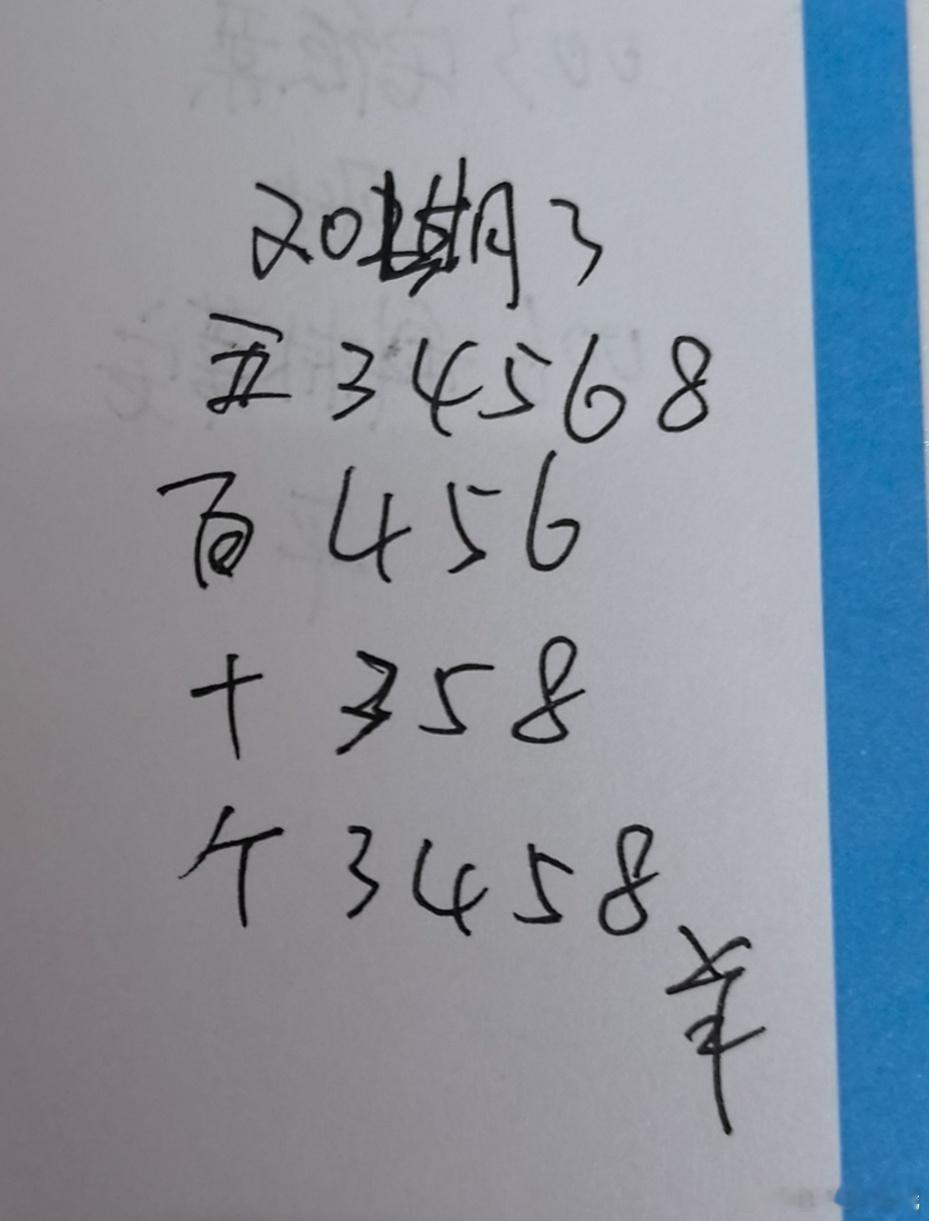 20 期 3
五 3 4 5 6 8
百 4 5 6
十 3 5 8
个 3 4 5 8